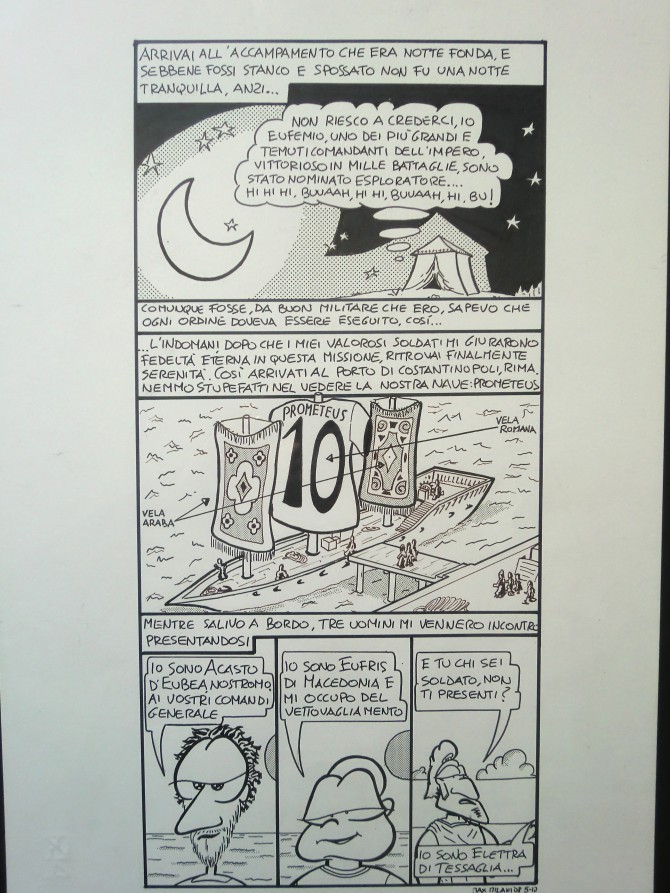 ARRIVAI ALL'ACCAMPAMENTO CHE ERA NOTTE FONDA, E
SEBBENE FOSSI STANCO E SPOSSATO NON FU UNA NOTTE
TRANQUILLA, ANZI...
NON RIESCO A CREDERCI, IO
EUFEMIO, UNO DEI PIÙ GRANDI E
TEMUTI COMANDANTI DELL'IMPERO,
VITTORIOSO IN MILLE BATTAGLIE, SONO
STATO NOMINATO ESPLORATORE....
HI HI HI, BUUAAH, HI HI, BUUAAH, HI, BU!
COMUNQUE FOSSE, DA BUON MILITARE CHE ERO, SAPEVO CHE
OGNI ORDINE DOVEVA ESSERE ESEGUITO, COSÍ...
...L'INDOMANI, DOPO CHE I MIEI VALOROSI SOLDATI MI GIURARONO
FEDELTÀ ETERNA IN QUESTA MISSIONE, RITROVAI FINALMENTE
SERENITÀ. COSÌ ARRIVATI AL PORTO DI COSTANTINOPOLI, RIMA.
NEMMO STUPEFATTI NEL VEDERE LA NOSTRA NAVE: PROMETEUS
PROMETEUS
10
VELA
ROMANA
VELA
ARABA
MENTRE SALIVO A BORDO, TRE UOMINI MI VENNERO INCONTRO
PRESENTANDOSI
IO SONO ACASTO
D'EUBEA, NOSTROMO,
AI VOSTRI COMANDI
GENERALE
IO SONO EUFRIS
DI MACEDONIA E
MI OCCUPO DEL
VETTOVAGLIAMENTO
E TU CHI SEI
SOLDATO, NON
TI PRESENTI?
IO SONO ELETTRA
DI TESSAGLIA...